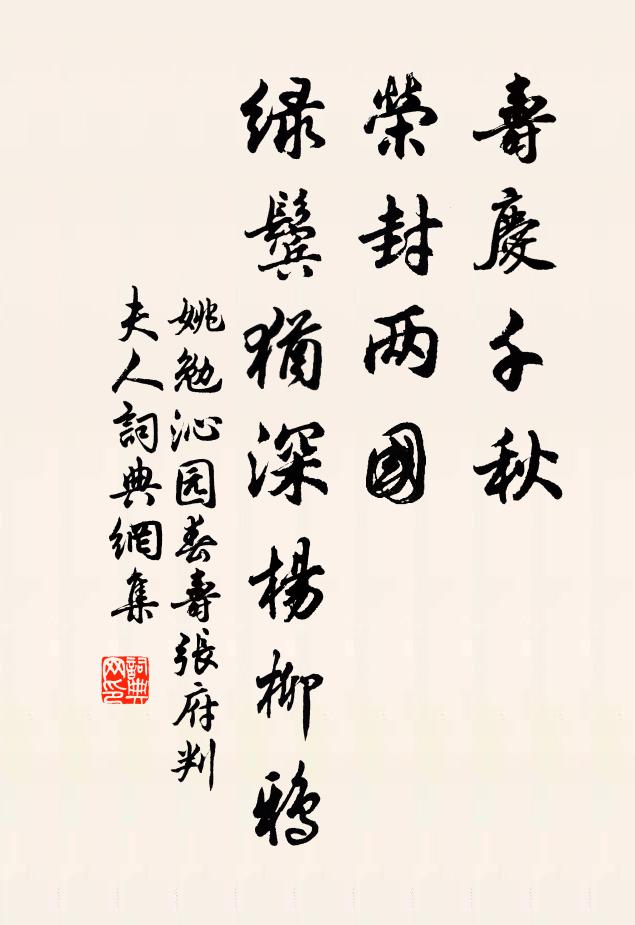 壽慶千秋
榮封两國
绿鬓猶深楊柳鴉
姚勉沁园春壽張府判
夫人詞典網集
詞典网印